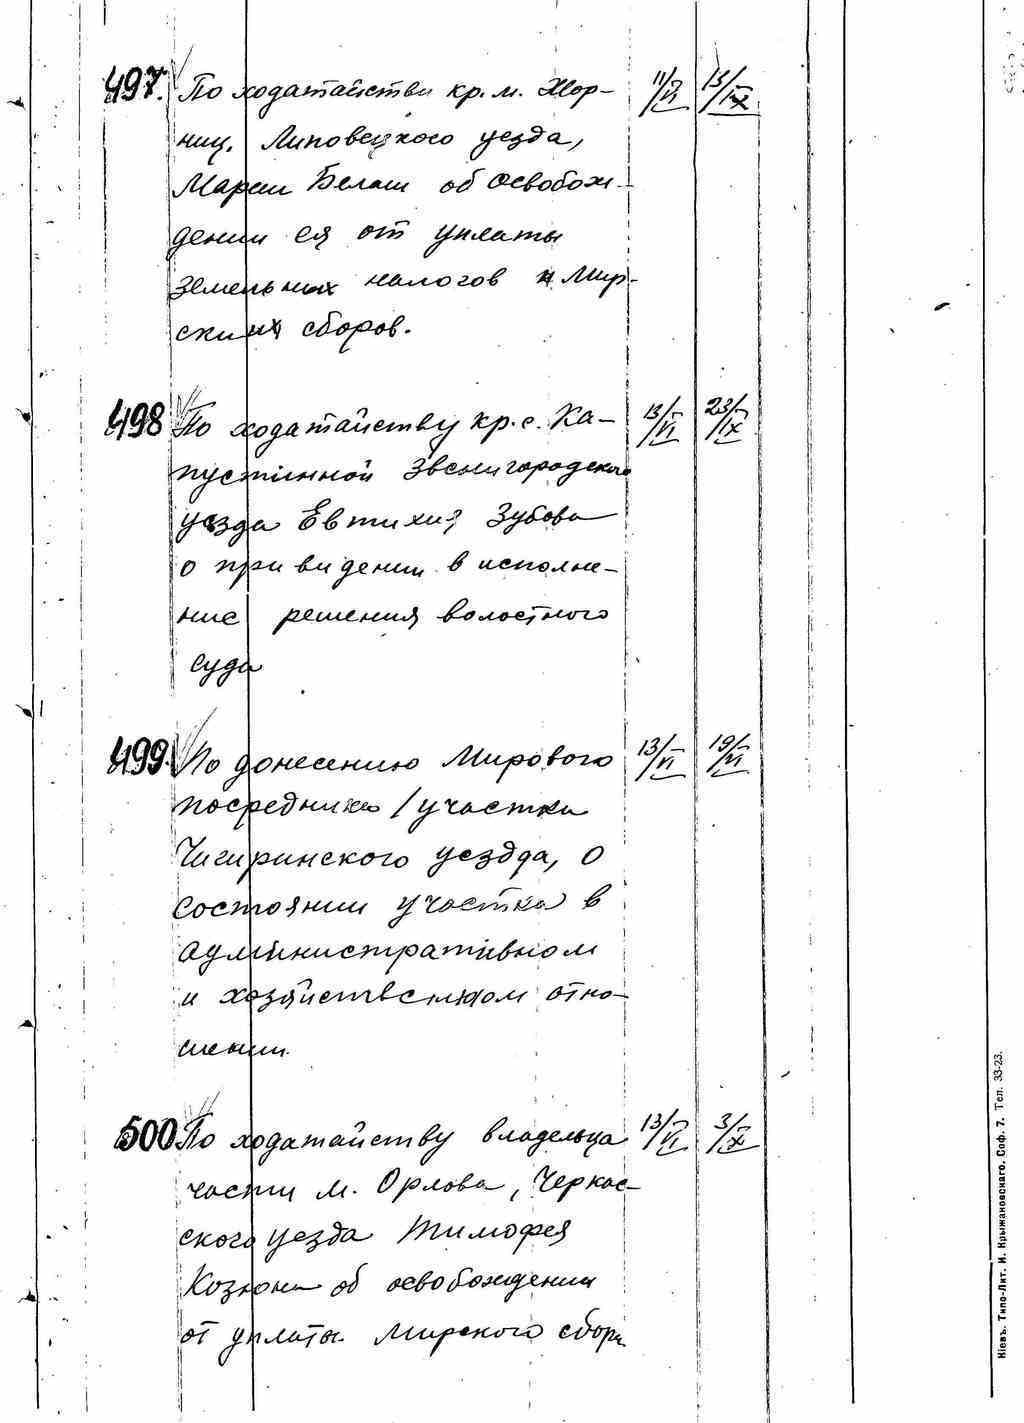 497. По ходатайству кр. м. Жор- 11/VI 13/IX
ниц. Липовецкого уезда,
Марии Белаш об освобож-
дении ея от уплаты
земельных налогов и мир-
ских сборов.
498 По ходатайству кр. с. Ка- 13/VI 23/IX
пустинной Звенигородского
уезда Евтихия Зубова
о привидении в исполне-
ние решения волостного
суда
499. По донесению Мирового 13/VI 19/VI
посредника 1 участка
Чигиринского уездда, о
состоянии участка в
административном
и хозяйственном отно-
шении.
500 По ходатайству владельца 13/VI 3/X
части м. Орлова, Черкас-
ского уезда Тимофея
Козюна об освобождении
от уплаты мирского сбора
Кіевъ. Типо-Лит. И. Крыжановскаго. Соф. 7. Тел. 33-23.